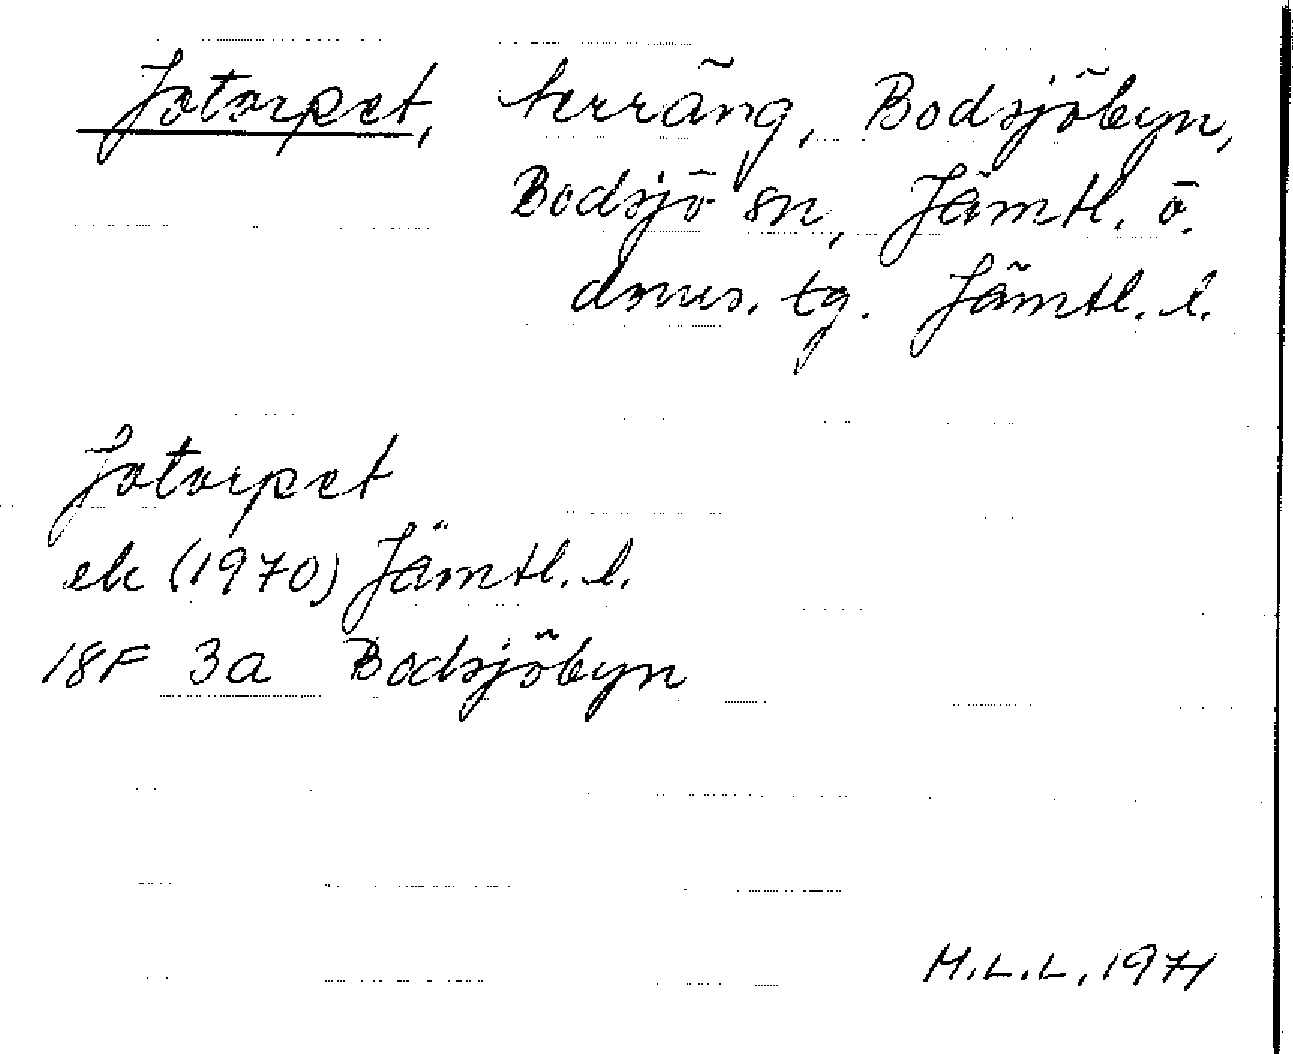 Jotorpet, terräng, Bodsjöbyn,
Bodsjö sn, Jämtl. ö.
dmrs. tg. Jämtl. l.
Jotorpet
ek (1970) Jämtl. l.
18F 3a Bodsjöbyn
H.L.L., 1971